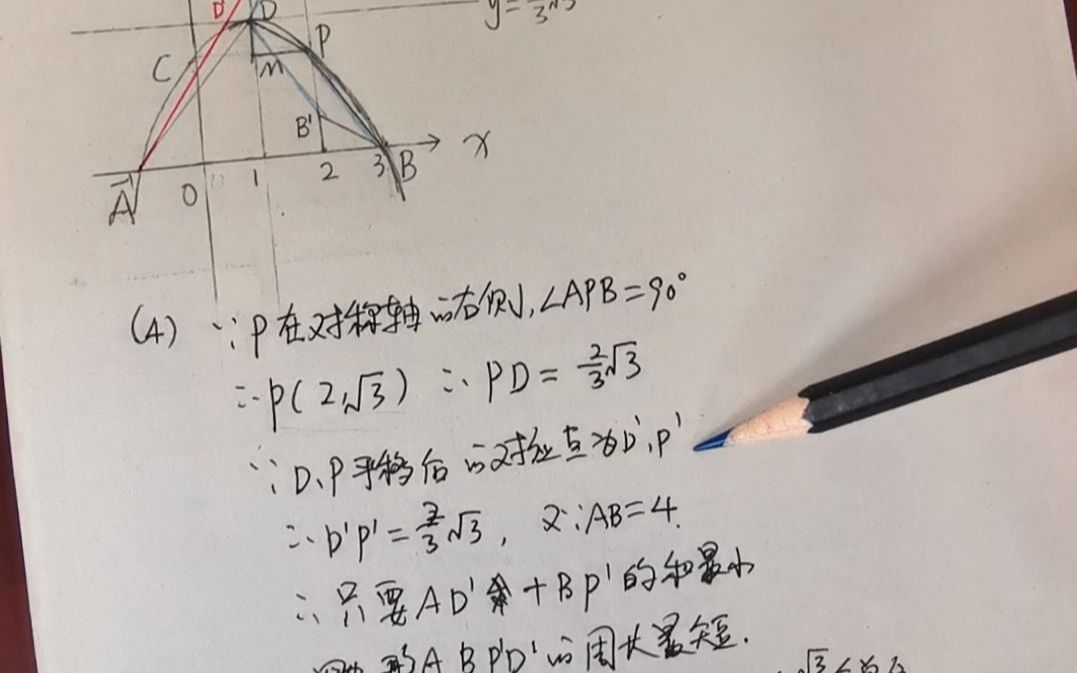 D' D
y=
3√3
C
M
P
B'
x
A
0
1
2
3
B
(4) ∵P在对称轴的右侧,∠APB=90°
∴P(2,√3) ∴PD=2/3√3
∵D、P平移后的对应点为D'、P'
∴D'P'=2/3√3, 又∵AB=4.
∴只要AD'+BP'的和最小
形ABP'D'的周长最短.
√3